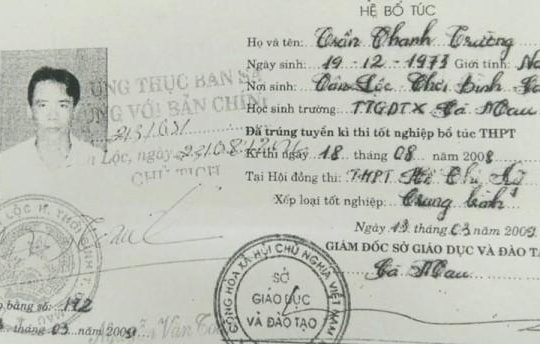 HỆ BỔ TÚC
Họ và tên: Trần Thanh Trường
Ngày sinh: 19-12-1973 Giới tính: Na
Nơi sinh: Tân Lộc Thới Bình Cà
Học sinh trường: TTGDTX Cà Mau
Đã trúng tuyển kì thi tốt nghiệp bổ túc THPT
Kì thi ngày 18 tháng 08 năm 2008
Tại Hội đồng thi: THPT
Xếp loại tốt nghiệp: Trung bình
Ngày 13 tháng 03 năm 2009
GIÁM ĐỐC SỞ GIÁO DỤC VÀ ĐÀO TẠ
Cà Mau
NG THỰC BẢN SA
NG VỚI BẢN CHÍN
Lộc, ngày
CHỦ TỊCH
LỘC H. THỚI BÌNH
CỘNG HÒA XÃ HỘI CHỦ NGHĨA VIỆT NAM
SỞ
GIÁO DỤC
VÀ ĐÀO TẠO
bằng số: 112
tháng 03 năm 2009
Nguyễn Văn